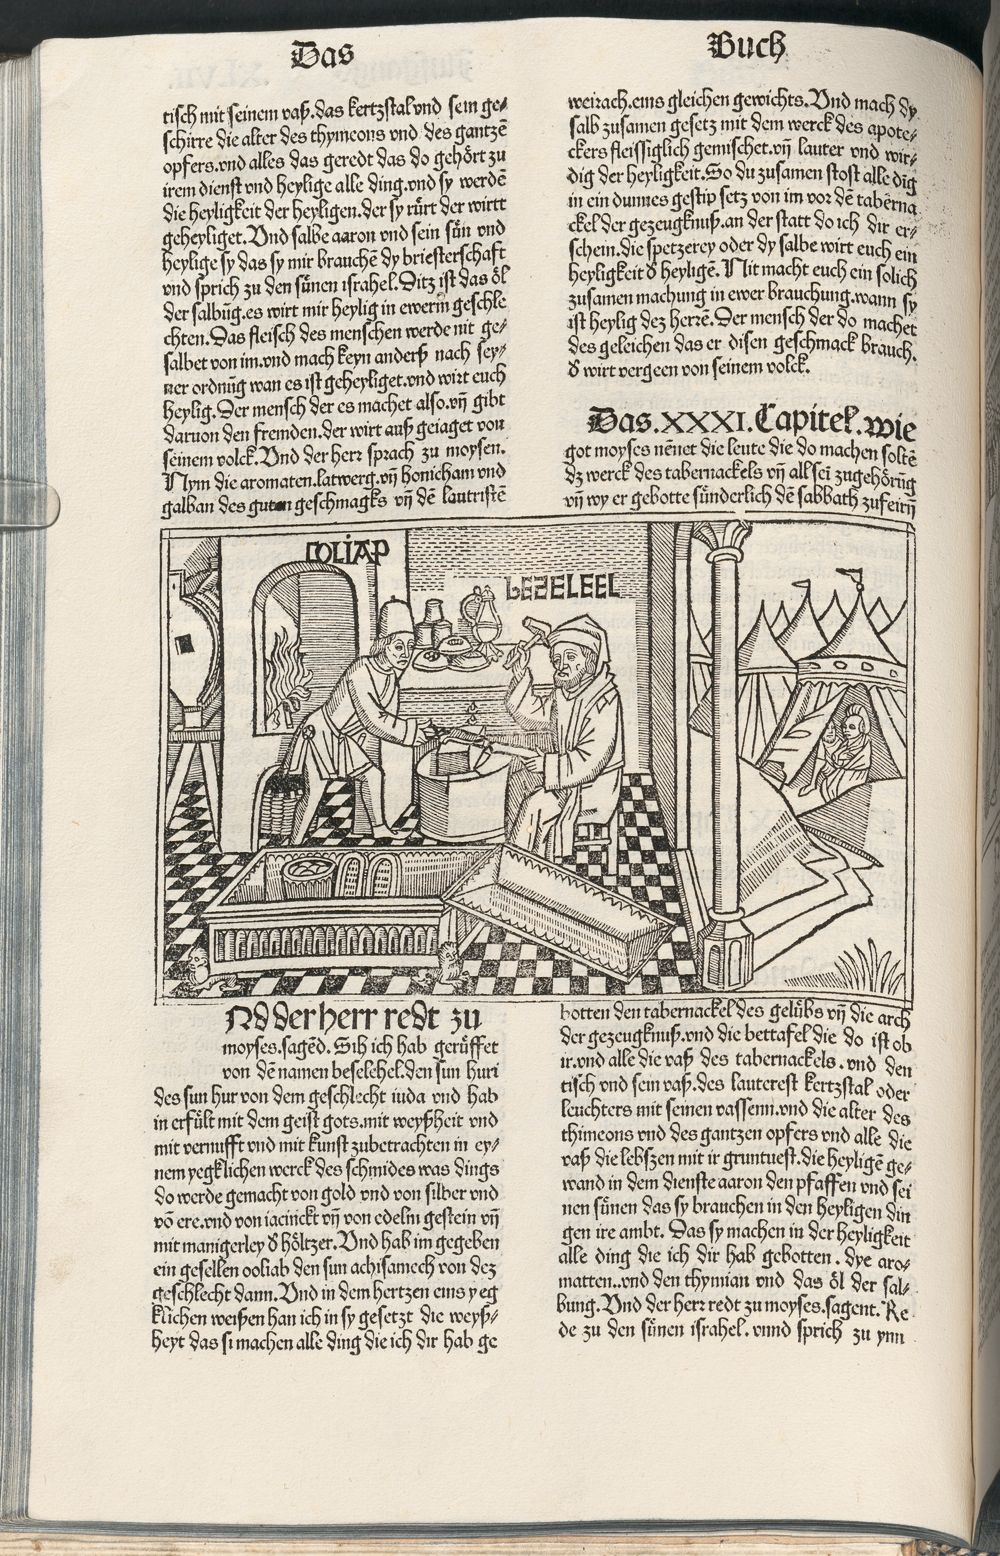 Das
Buch
tisch mit seinem vaß.das kertzstal vnd sein ge⸗
schirre die alter des thymeons vnd des gantzē
opfers.vnd alles das geredt das do gehört zu
irem dienst vnd heylige alle ding.vnd sy werdē
die heyligkeit der heyligen.der sy rürt der wirtt
geheyliget.Vnd salbe aaron vnd sein sün vnd
heylige sy das sy mir brauchē dy briesterschaft
vnd sprich zu den sünen israhel.Ditz ist das öl
der salbūg.es wirt mir heylig in ewerm geschle
chten.Das fleisch des menschen werde nit ge⸗
salbet von im.vnd mach keyn anderß nach sey⸗
ner ordnūg wan es ist geheyliget.vnd wirt euch
heylig.Der mensch der es machet also.vn̄ gibt
daruon den fremden.der wirt auß geiaget von
seinem volck.Vnd der herr sprach zu moysen.
Nym die aromaten.latwerg.vn̄ honicham vnd
galban des guten geschmagks vn̄ dē lautristē
weirach.eins gleichen gewichts.Vnd mach dy
salb zusamen gesetz mit dem werck des apote⸗
ckers fleissiglich gemischet.vn̄ lauter vnd wir⸗
dig der heyligkeit.So du zusamen stost alle dīg
in ein dunnes gestip setz von im vor dē taberna
ckel der gezeugknuß.an der statt do ich dir er⸗
schein.die spetzerey oder dy salbe wirt euch ein
heyligkeit d̓ heyligē. Nit macht euch ein solich
zusamen machung in ewer brauchung.wann sy
ist heylig dez herrē.Der mensch der do machet
des geleichen das er disen geschmack brauch.
d̓ wirt vergeen von seinem volck.
Das.XXXI.Capitel.wie
got moyses nēnet die leute die do machen soltē
dz werck des tabernackels vn̄ all sei zugehörūg
vn̄ wy er gebotte sünderlich dē sabbath zufeirn̄
OOLIAP
BEZELEEL
Nd der herr redt zu
moyses.sagēd. Sih ich hab gerüffet
von dē namen beselehel.den sun huri
des sun hur von dem geschlecht iuda vnd hab
in erfült mit dem geist gots.mit weyßheit vnd
mit vernufft vnd mit kunst zubetrachten in ey⸗
nem yegklichen werck des schmides was dings
do werde gemacht von gold vnd von silber vnd
vō ere.vnd von iacinckt vn̄ von edelm gestein vn̄
mit manigerley d̓ höltzer.Vnd hab im gegeben
ein gesellen ooliab den sun achisamech von dez
geschlecht dann.Vnd in dem hertzen eins yeg
klichen weißen han ich in sy gesetzt die weyß⸗
heyt das si machen alle ding die ich dir hab ge
botten den tabernackel des gelübs vn̄ die arch
der gezeugknuß.vnd die bettafel die do ist ob
ir.vnd alle die vaß des tabernackels.vnd den
tisch vnd sein vaß.des lauterest kertzstal oder
leuchters mit seinen vassenn.vnd die alter des
thimeons vnd des gantzen opfers vnd alle die
vaß die lebszen mit ir gruntuest.die heyligē ge⸗
wand in dem dienste aaron den pfaffen vnd sei
nen sünen das sy brauchen in den heyligen din
gen ire ambt. Das sy machen in der heyligkeit
alle ding die ich dir hab gebotten. dye aro⸗
matten..vnd den thymian vnd das öl der sal⸗
bung.Vnd der herr redt zu moyses.sagent. Re
de zu den sünen israhel.vnnd sprich zu ynn